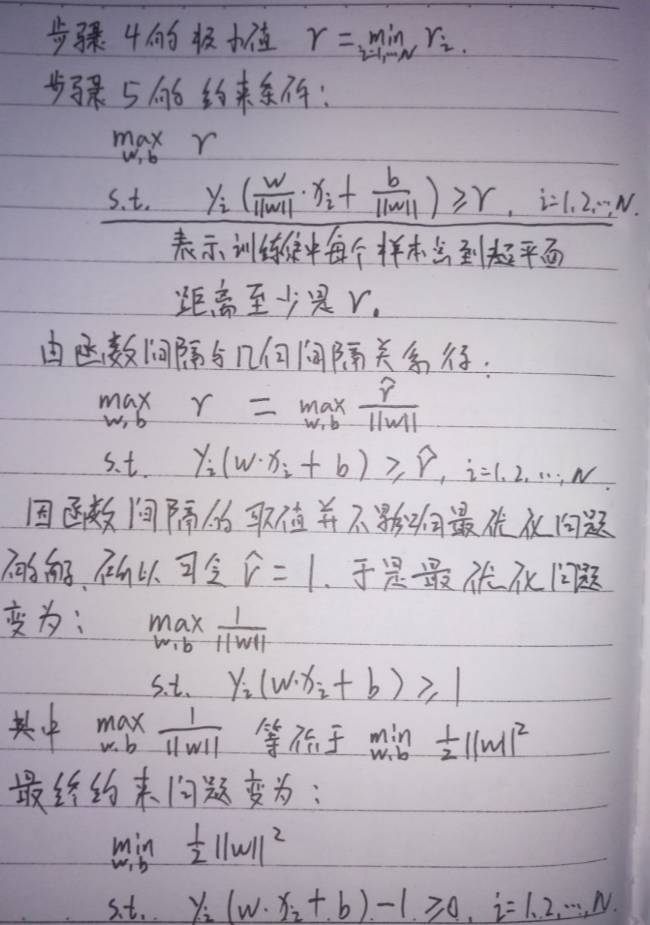 步骤4的极小值 r = min r_i.
i=1,…,N
步骤5的约束条件:
max r
w,b
s.t. y_i (w/||w||·x_i + b/||w||) ≥ r, i=1,2,…,N.
表示训练集中每个样本点到超平面
距离至少是r。
由函数间隔与几何间隔关系得:
max r = max r̂/||w||
w,b w,b
s.t. y_i(w·x_i + b) ≥ r̂, i=1,2,…,N.
因函数间隔的取值并不影响最优化问题
的解,所以可令 r̂ = 1. 于是最优化问题
变为: max 1/||w||
w,b
s.t. y_i(w·x_i + b) ≥ 1
其中 max 1/||w|| 等价于 min ½||w||²
w,b w,b
最终约束问题变为:
min ½||w||²
w,b
s.t. y_i(w·x_i + b) - 1 ≥ 0, i=1,2,…,N.